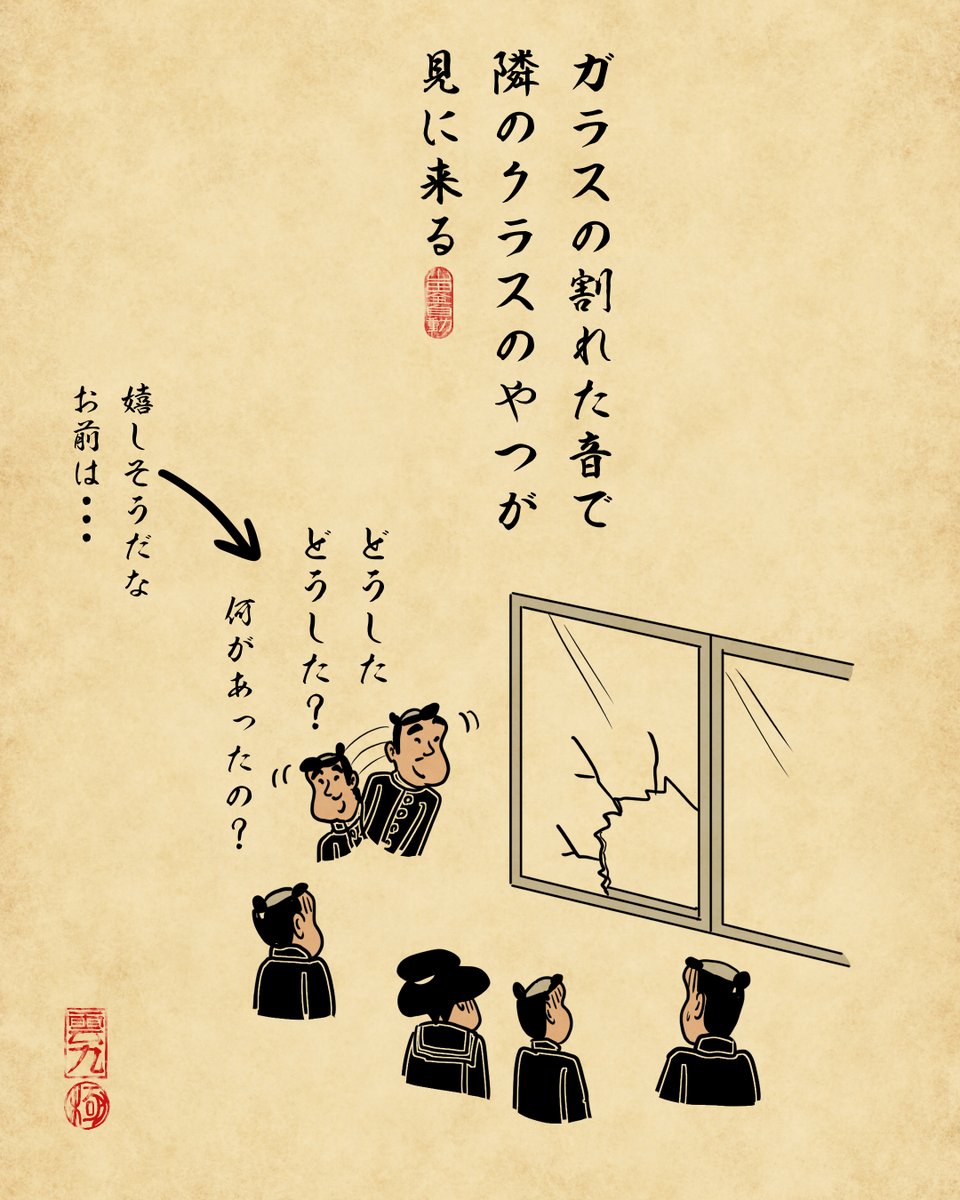 ガラスの割れた音で
隣のクラスのやつが
見に来る
どうした
どうした?
何があったの?
嬉しそうだな
お前は・・・